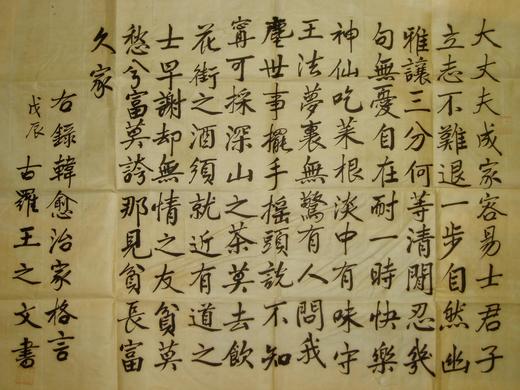 大丈夫成家容易士君子
立志不難退一步自然幽
雅讓三分何等清閒忍幾
句無憂自在耐一時快樂
神仙吃菜根淡中有味守
王法夢裏無驚有人問我
塵世事擺手搖頭說不知
寗可採深山之茶莫去飲
花街之酒須就近有道之
士早謝却無情之友貧莫
愁兮富莫誇那見貧長富
久家
右錄韓愈治家格言
戊辰 古羅王之文書